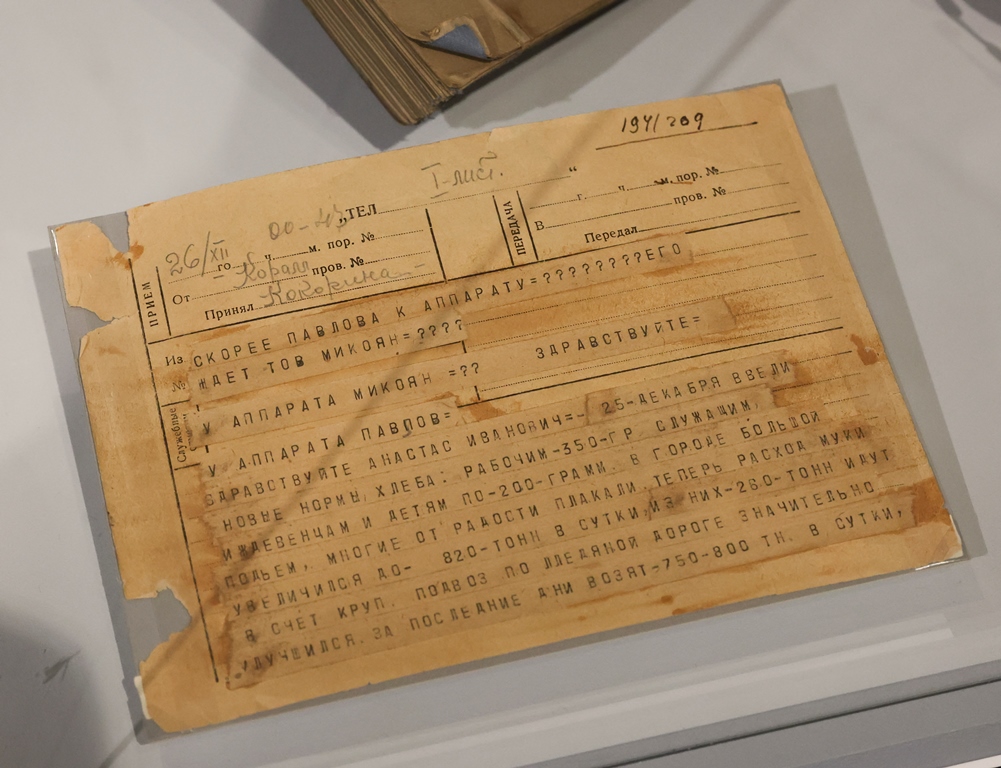 194/209
I-лист.
26/XII 00-43 „ТЕЛ “
го г. ч. м. пор. №
От Коралл пров. №
Принял Кокорина
ПРИЕМ
ПЕРЕДАЧА
г. ч. м. пор. №
В пров. №
Передал
Из
№
Служебные
СКОРЕЕ ПАВЛОВА К АППАРАТУ=????????ЕГО
ЖДЕТ ТОВ МИКОЯН=????
У АППАРАТА МИКОЯН =?? ЗДРАВСТВУЙТЕ=
У АППАРАТА ПАВЛОВ=
ЗДРАВСТВУЙТЕ АНАСТАС ИВАНОВИЧ=- 25-ДЕКАБРЯ ВВЕЛИ
НОВЫЕ НОРМЫ ХЛЕБА: РАБОЧИМ-350-ГР СЛУЖАЩИМ,
ИЖДЕВЕНЦАМ И ДЕТЯМ ПО-200-ГРАММ. В ГОРОДЕ БОЛЬШОЙ
ПОДЬЕМ, МНОГИЕ ОТ РАДОСТИ ПЛАКАЛИ ТЕПЕРЬ РАСХОД МУКИ
УВЕЛИЧИЛСЯ ДО- 820-ТОНН В СУТКИ,ИЗ НИХ-260-ТОНН ИДУТ
В СЧЕТ КРУП. ПОДВОЗ ПО ЛЛЕДЯНОЙ ДОРОГЕ ЗНАЧИТЕЛЬНО
УЛУЧШИЛСЯ. ЗА ПОСЛЕДНИЕ ДНИ ВОЗЯТ-750-800 ТН. В СУТКИ,